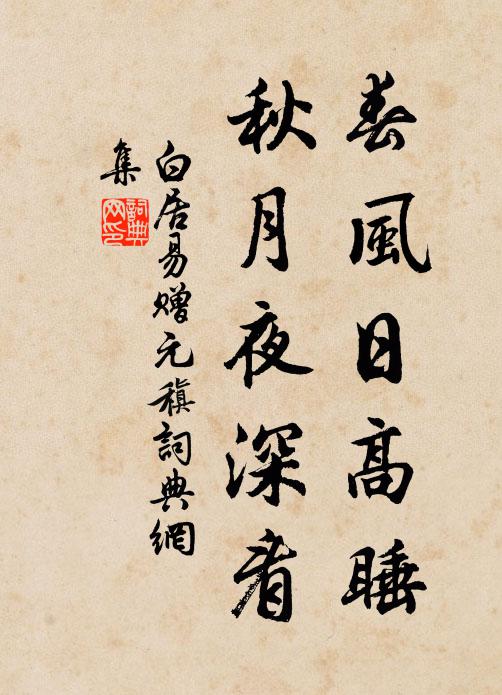 春風日高睡
秋月夜深看
白居易贈元稹詞典網
集
詞典
网印